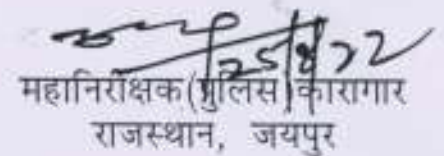 25/8/22
महानिरीक्षक(पुलिस)कारागार
राजस्थान, जयपुर